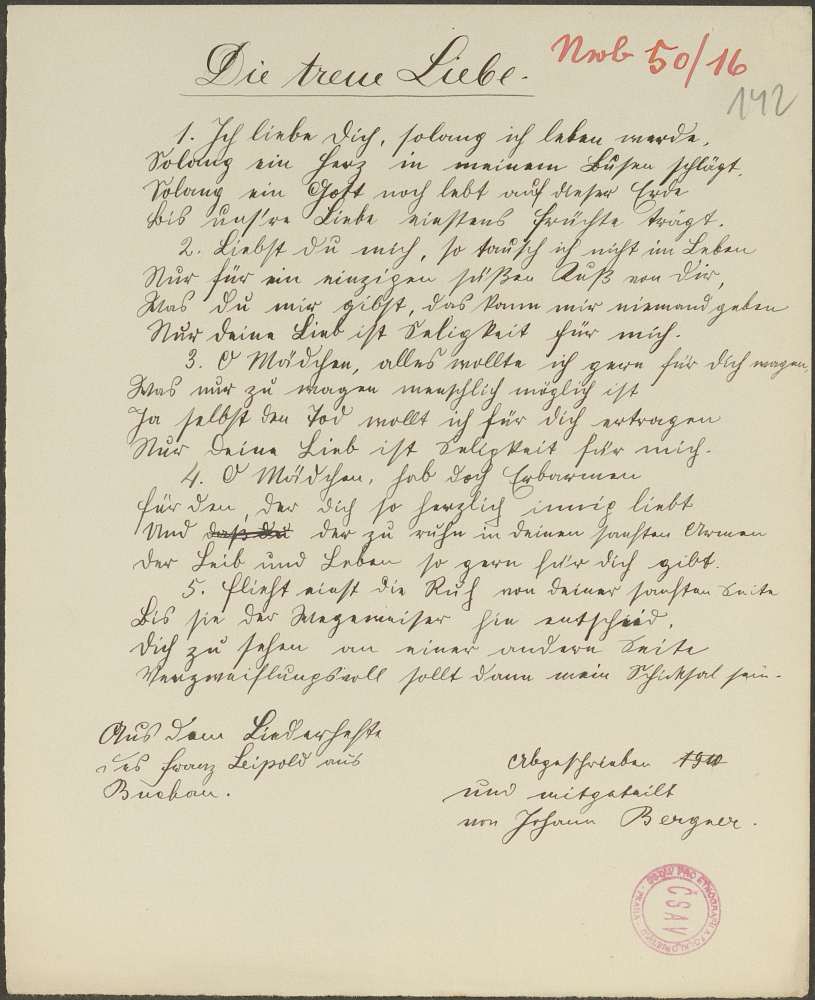 Die treue Liebe.
Nwb 50/16
142
1. Ich liebe Dich, solang ich leben werde,
Solang ein Herz in meinem Busen schlägt,
Solang ein Gott noch lebt auf dieser Erde
Bis uns're Liebe einstens Früchte trägt.
2. Liebst du mich, so tausch ich nicht im Leben
Nur für ein einzigen süßen Kuß von Dir,
Was Du mir gibst, das kann mir niemand geben
Nur deine Lieb ist Seligkeit für mich.
3. O Mädchen, alles wollte ich gern für dich wagen,
Was nur zu wagen menschlich möglich ist
Ja selbst den Tod wollt ich für dich ertragen
Nur deine Lieb ist Seligkeit für mich.
4. O Mädchen, hab doch Erbarmen
für den, der dich so herzlich innig liebt
Und daß du der zu ruhn in deinen sanften Armen
der Leib und Leben so gern für dich gibt.
5. flieht einst die Ruh von deiner sanften Seite
Bis sie der Wegweiser hin entschied,
dich zu sehen an einer andern Seite
Verzweiflungsvoll sollt dann mein Schicksal sein.
Aus dem Liederhefte
des Franz Leipold aus
Buchau.
Abgeschrieben
und mitgeteilt
von Johann Bergner.
ÚSTAV PRO ETNOGRAFII A FOLKLORISTIKU
ČSAV
PRAHA